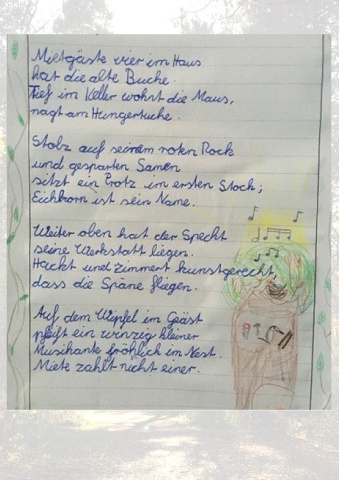 Mietgäste vier im Haus
hat die alte Buche.
Tief im Keller wohnt die Maus,
nagt am Hungertuche.
Stolz auf seinem roten Rock
und gesparten Samen
sitzt ein Protz im ersten Stock;
Eichhorn ist sein Name.
Weiter oben hat der Specht
seine Werkstatt liegen.
Hackt und zimmert kunstgerecht,
dass die Späne fliegen.
Auf dem Wipfel im Geäst
pfeift ein winzig kleiner
Musikante fröhlich im Nest.
Miete zahlt nicht einer.